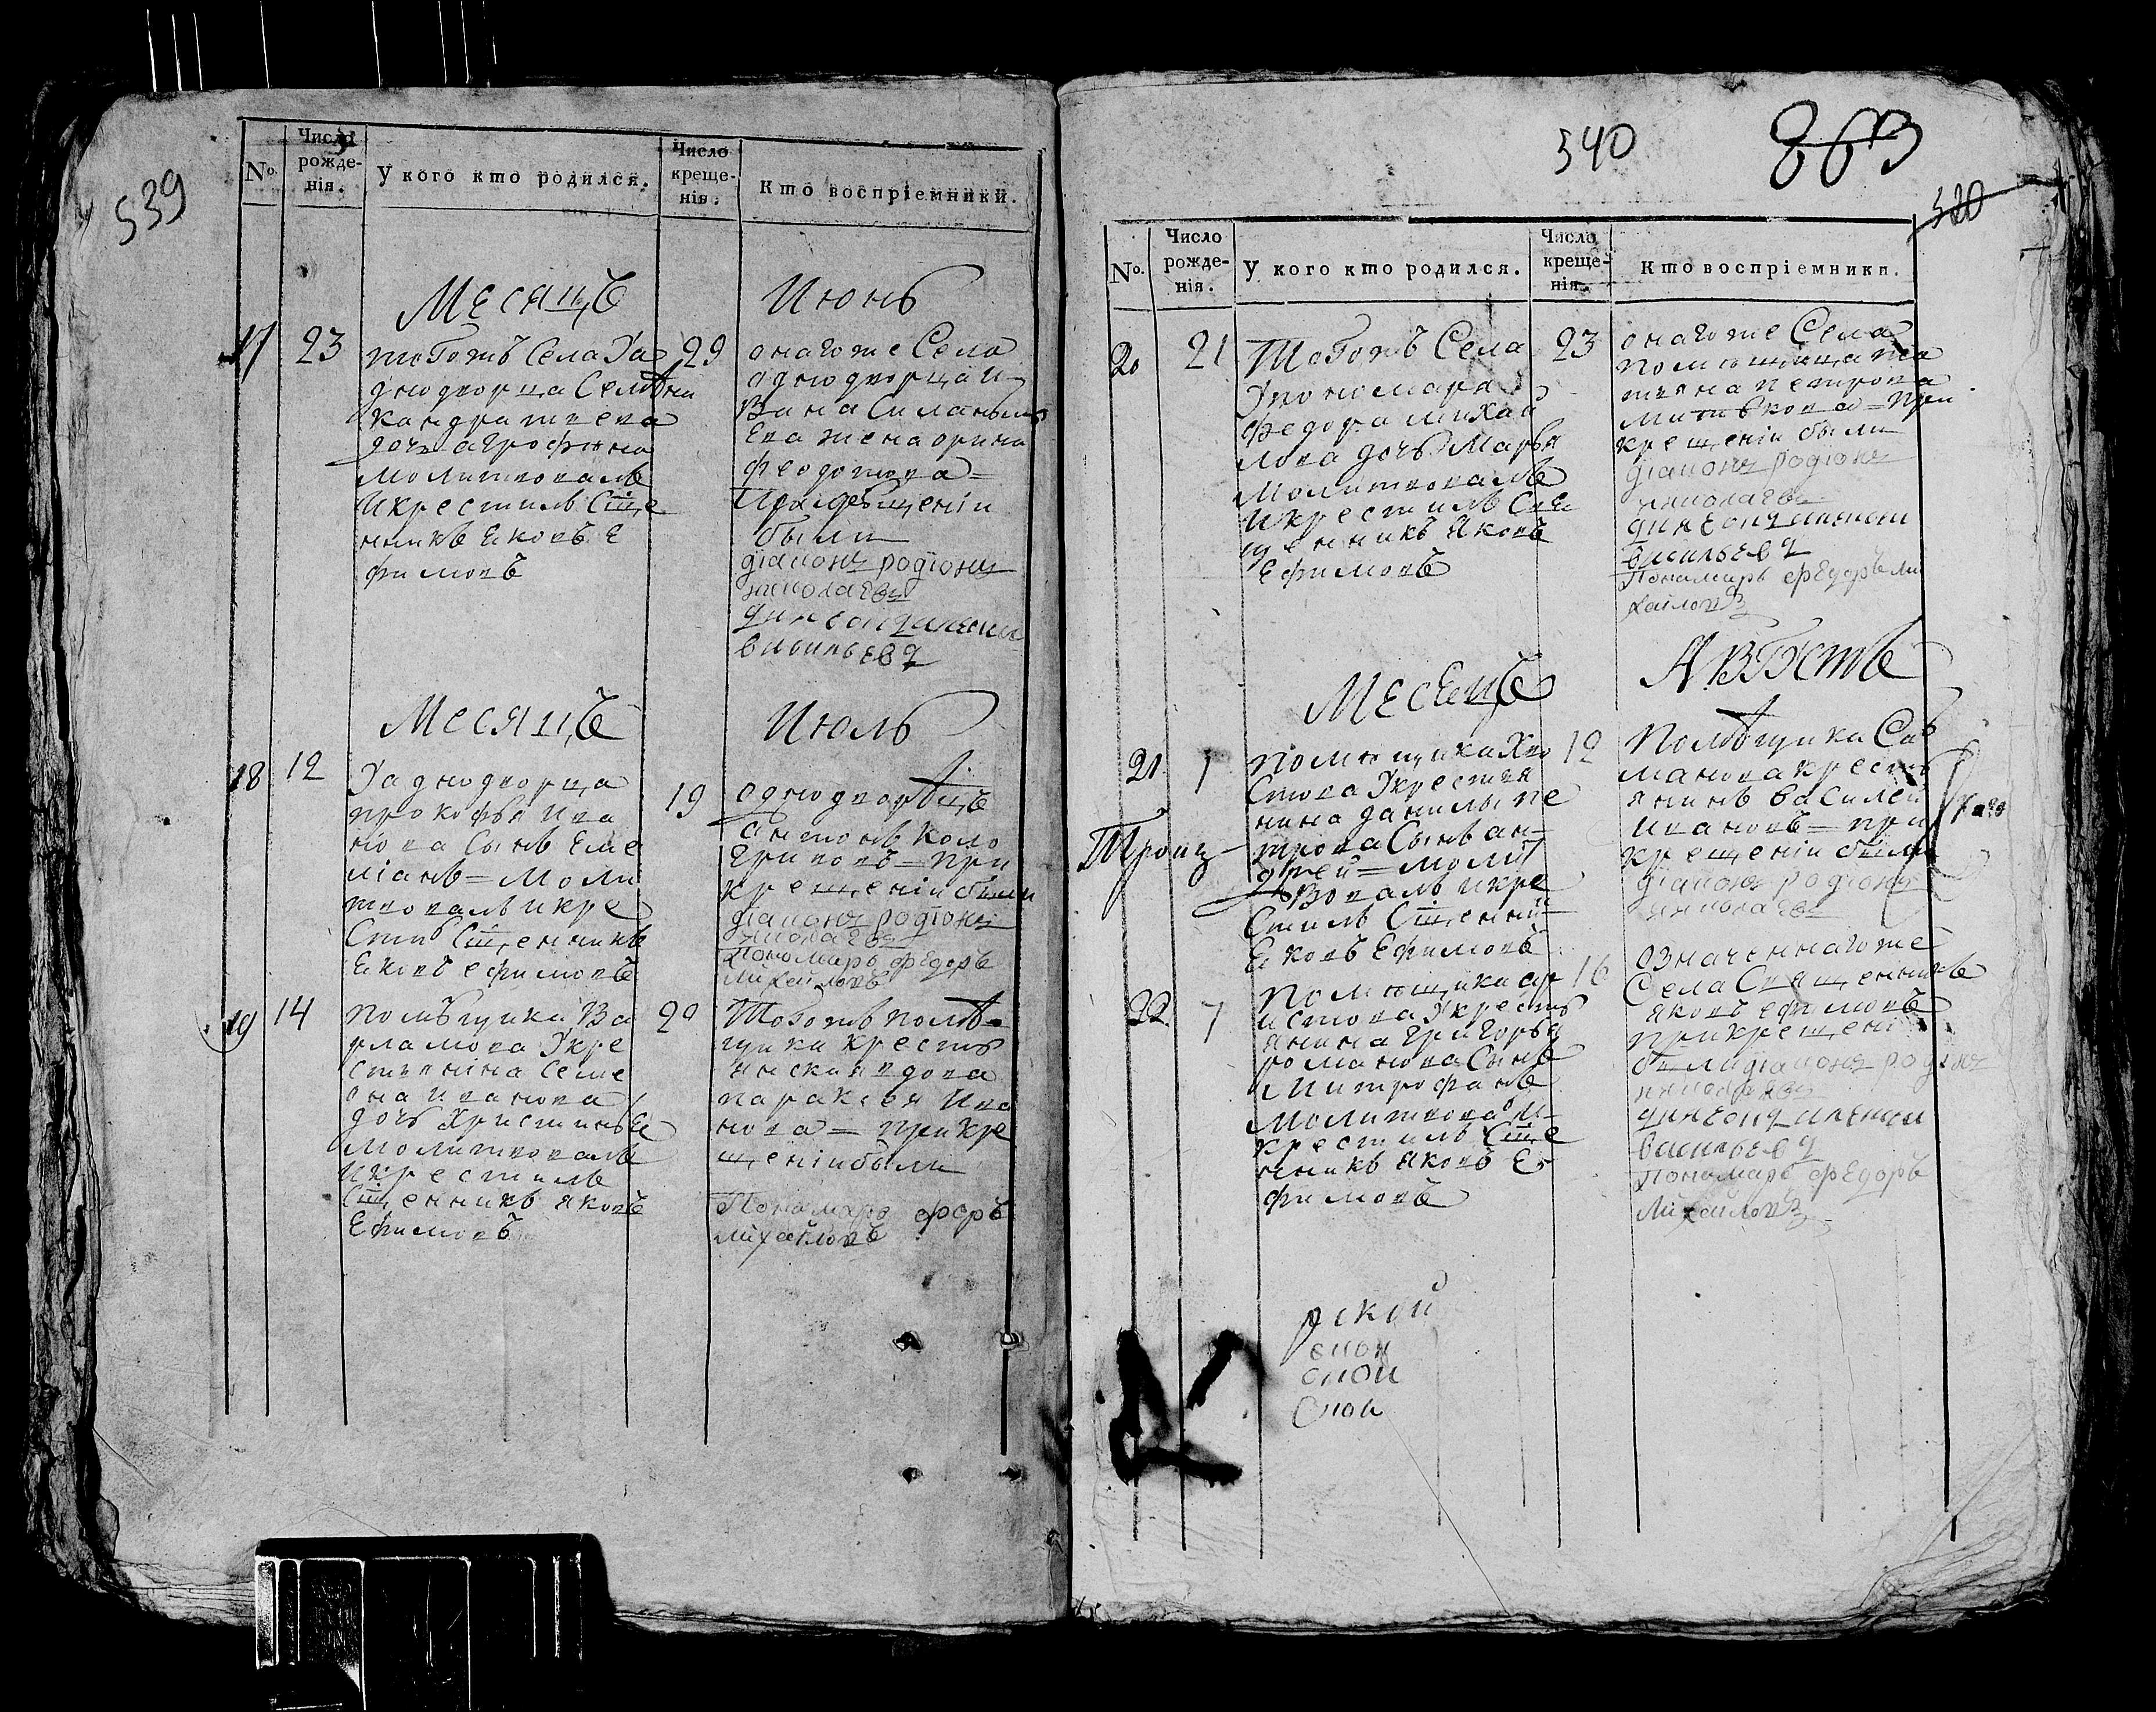 539
№
Число рожде-нія.
У кого кто родился.
Число креще-нія.
Кто воспріемники.
Месяцъ
Июнь
17
23
тоготъ Села Уа
днодворца Семѣна
кандратиева
дочь агрофина
молитвовалъ
Икрестилъ Сще
нникъ Яковъ Е
фимовъ
29
онагоже Села
однодворца И
вана
ева жена орина
феодотова =
При крещеніи
были
діаконъ родіонъ
николаевъ
васильевъ
Месяцъ
Июль
18
12
Уаднодворца
прокофья Ива
нова Сынъ Еме
ліанъ = моли
твовалъ икре
Стилъ Сщенникъ
Яковъ ефимовъ
19
однодворецъ
антонъ Коло
гривовъ = при
крещеніи были
діаконъ родіонъ
николаевъ
Пономарь федоръ
михайловъ
19
14
помѣщика Ва
рламова Укре
стьянина Семе
она иванова
дочь Христинья
молитвовалъ
Икрестилъ
Сщенникъ яковъ
Ефимовъ
20
Тоготъ помѣ
щика кресть
янская вдова
параксвя Ива
нова = прикре
щеніибыли
Пономарь
михайловъ
340
863
320
№
Число рожде-нія.
У кого кто родился.
Число креще-нія.
Кто воспріемники.
20
21
Тоготъ Села
Упономаря
Федора михай
лова дочь Марья
Молитвовалъ
Икрестилъ Свя
щенникъ Яковъ
Ефимовъ
23
онагоже Села
помещица та
тьяна петрова
= При
крещеніи были
діаконъ родіонъ
николаевъ
васильевъ
Пономарь федоръ ми
хайловъ
Месецъ
Августъ
21
1
помещика Хво
Стова Укрестья
нина данилы пе
трова Сынъ ан
дрей = молит
вовалъ икре
Стилъ Сщенни
Яковъ Ефимовъ
12
Помѣщика
манова кресть
янинъ Василей
ивановъ = при
крещеніи были
діаконъ родіонъ
николаевъ
22
7
Помещика ар
истова Укресть
янина григорья
романова Сынъ
Митрофанъ
молитвовалъ И
крестилъ Сще
нникъ яковъ Е
фимовъ
16
означеннагоже
Села Священникъ
яковъ ефимовъ
прикрещені
были діаконъ родіонъ
николаевъ
васильевъ
Пономарь федоръ
Михайловъ